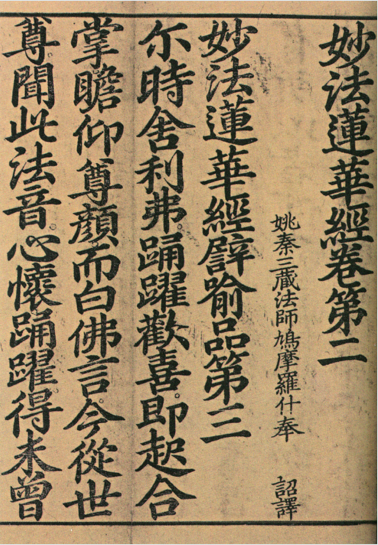 妙法蓮華經卷第二
姚秦三藏法師鳩摩羅什奉 詔譯
妙法蓮華經譬喻品第三
尒時舍利弗踊躍歡喜即起合
掌瞻仰尊顔而白佛言今從世
尊聞此法音心懷踊躍得未曾